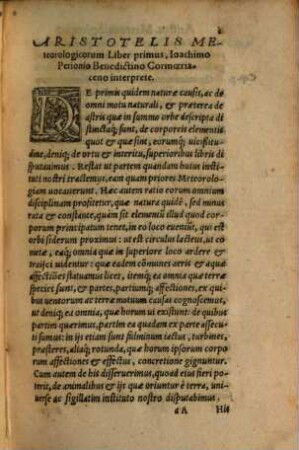 ARISTOTELIS ME-
teorologicorum Liber primus, Ioachimo
Perionio Benedictino Cormœria-
ceno interprete.
DE primis quidem naturæ causis, ac de
omni motu naturali, & præterea de
astris quæ in summo orbe descripta di
stinctaq; sunt, de corporeis elementis
quot & quæ sint, eorumq; vicissitu-
dine, deniq; de ortu & interitu, superioribus libris di
sputauimus. Restat ut partem quandam huius insti
tuti nostri tractemus, eam quam priores Meteorolo-
giam uocauerunt. Hæc autem ratio eorum omnium
disciplinam profitetur, quæ natura quidē, sed minus
rata & constante, quàm sit elementū illud quod cor-
porum principatum tenet, in eo loco eueniūt, qui est
orbi siderum proximus: ut est circulus lacteus, ut co
metæ, eaq; omnia quæ in superiore loco ardere &
traijci uidentur: quæ eadem cōmunes aeris & aquæ
affectiōes statuamus licet, itemq; ea omnia quæ terræ
species sunt, & partes, partiumq; affectiones, ex qui
bus uentorum ac terræ motuum causas cognoscemus,
ut deniq; ea omnia, quæ horum ui existunt: de quibus
partim quærimus, partim ea quadam ex parte assecu
ti sumus: ut etiam sunt fulminum iactus, turbines,
præsteres, aliaq; rotunda, quæ horum ipsorum corpo
rum affectiones & effectus, concretione gignuntur.
Cum autem de his disseruerimus, quoad eius fieri po-
terit, de animalibus & ijs quæ oriuntur è terra, uni-
uerse ac sigillatim instituto nostro disputabimus.
A His